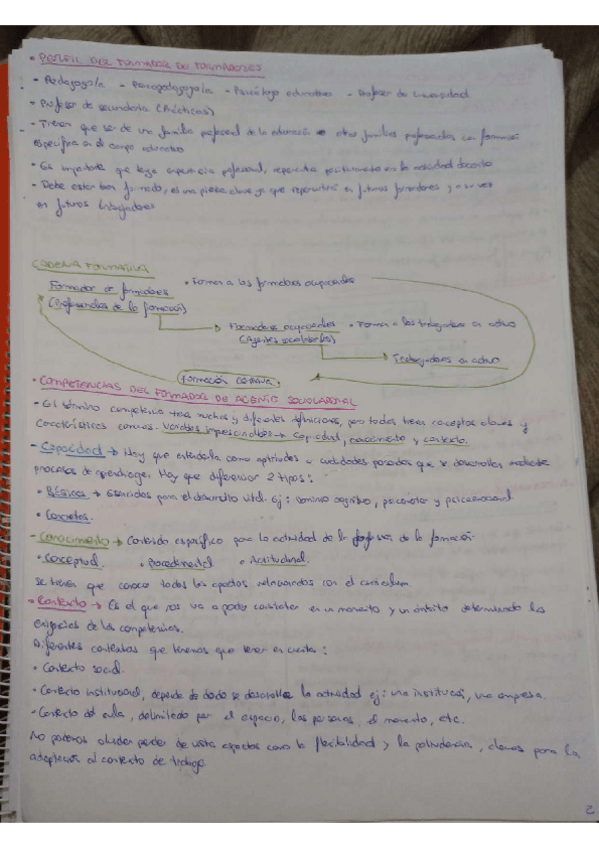 • PERFIL DEL FORMADOR DE FORMADORES
- Pedagogo/a - Psicopedagogo/a - Psicólogo educativo - Profesor de Universidad
- Profesor de secundaria (Prácticas)
- Tienen que ser de una familia profesional de la educación otras familias profesionales con formación
específica en el campo educativo
- Es importante que tenga experiencia profesional, repercutirá positivamente en la actividad docente
- Debe estar bien formado, es una pieza clave ya que repercutirá en futuros formadores y a su vez
en futuros trabajadores
CADENA FORMATIVA
Formador de formadores • Forman a los formadores ocupacionales
(Profesionales de la formación)
Formadores ocupacionales • Forman a los trabajadores en activo
(Agentes sociolaborales)
Trabajadores en activo
Formación continua
• COMPETENCIAS DEL FORMADOR DE AGENTE SOCIOLABORAL
- El término competencia tiene muchas y diferentes definiciones, pero todas tienen conceptos claves y
características comunes. Variables imprescindibles → Capacidad, conocimiento y contexto.
- Capacidad → Hay que entenderla como aptitudes o cualidades personales que se desarrollan mediante
procesos de aprendizaje. Hay que diferenciar 2 tipos:
• Básicas → Esenciales para el desarrollo vital. ej: Dominio cognitivo, psicomotor y psicoemocional
• Concretas.
- Conocimiento → Contenido específico para la actividad de la profesión de la formación.
• Conceptual. • Procedimental • Actitudinal.
Se tienen que conocer todos los aspectos relacionados con el curriculum.
- Contexto → Es el que nos va a poder constatar en un momento y un ámbito determinado las
exigencias de las competencias.
Diferentes contextos que tenemos que tener en cuenta:
• Contexto social.
• Contexto institucional, depende de donde se desarrolle la actividad ej: una institución, una empresa.
• Contexto del aula, delimitado por el espacio, las personas, el momento, etc.
No podemos olvidar perder de vista aspectos como la flexibilidad y la polivalencia, claves para la
adaptación al contexto de trabajo.
2